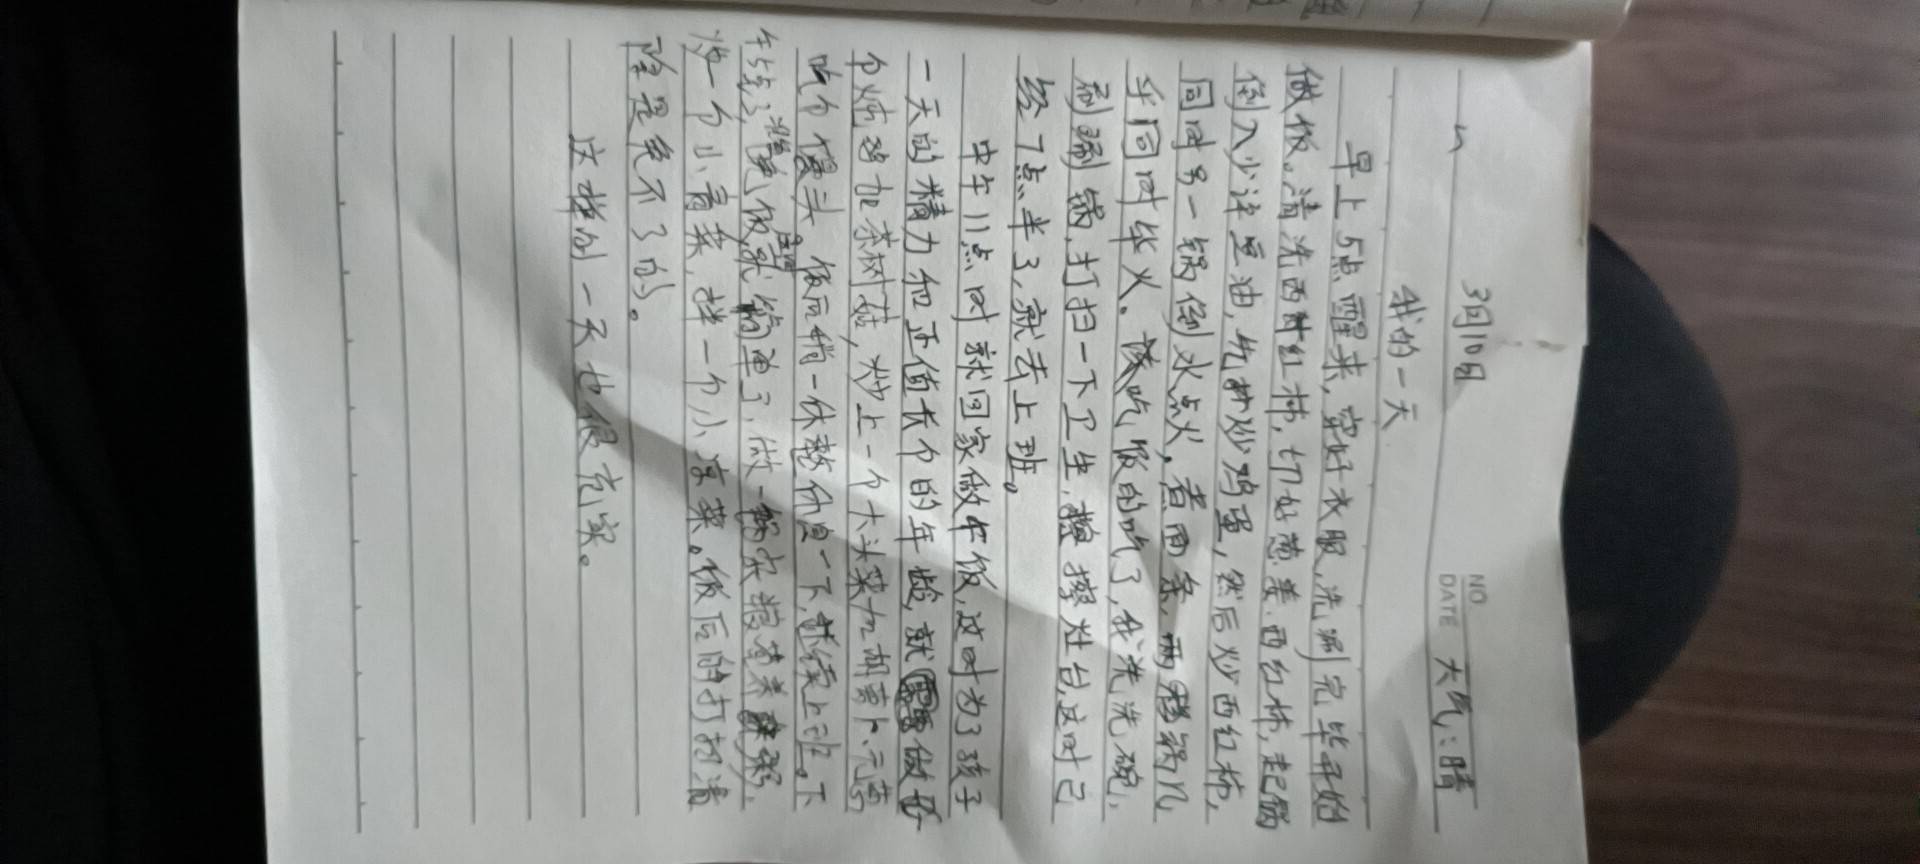 NO
DATE 大气:晴
3月10日
我的一天
早上5点醒来,穿好衣服,洗涮完毕开始
做饭。清洗西红柿,切好葱姜、西红柿,起锅
倒入少许豆油,先炒鸡蛋,然后炒西红柿,
同时另一锅倒水点火,煮面条,两锅几
乎同时关火。该吃饭的吃了,我洗洗碗,
刷刷锅,打扫一下卫生,擦擦灶台,这时已
经7点半了,就去上班。
中午11点时就回家做中饭,这时为了孩子
一天的精力和正值长个的年龄,就做
个炖鸡加茶树菇,炒上一个大头菜加胡萝卜、元葱
吃个馒头,饭后稍一休整休息一下,继续上班。下
午5点了,准备晚饭,就简单了,做一锅杂粮营养粥,
炒一个小青菜,拌一个小凉菜。饭后的打扫清
除是免不了的。
这样的一天也很充实。